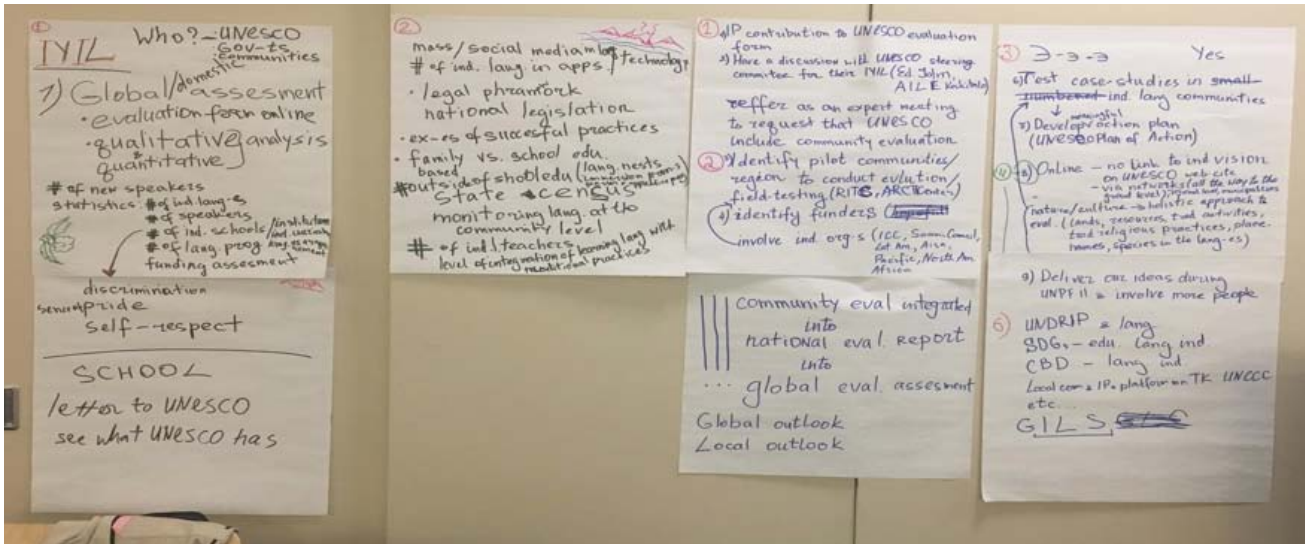 ①
IYIL
Who? - UNESCO
Gov-ts
communities
1) Global/domestic assesment
• evaluation form online
• qualitative analysis
& quantitative
# of new speakers
statistics: # of ind lang-es
# of speakers
# of ind. schools
# of lang. prog
funding assesment
discrimination
pride
self-respect
SCHOOL
letter to UNESCO
see what UNESCO has
②
mass/social media
# of ind. lang. in apps / technology
• legal phramtork
national legislation
• ex-es of succesful practices
• family vs. school edu.
based
# outside of shooledu (lang. nests
State census
monitoring lang. at the
community level
# of ind. teachers
level of integration of learning lang with
traditional practices
①
1) IP contribution to UNESCO evaluation
form
2) Have a discussion with UNESCO steering
commitee for their IYIL (Ed John,
reffer as an expert meeting
to request that UNESCO
include community evaluation
②
Identify pilot communities/
region to conduct evlution/
field-testing (RITC, ARCTICenter)
4) identify funders
involve ind org-s (ICC, Saami Council,
Lat Am, Aisa,
Pacific, North Am
Africa
community eval integrated
into
national eval. REPORT
into
... global eval. assesment
Global outlook
Local outlook
③
Э-э-э Yes
6) Test case-studies in small
numbered ind. lang communities
7) Develop meaningful action plan
(UNESCO Plan of Action)
④
8) Online - no link to ind vision
on UNESCO web cite
- via networks (all the way to the
nature/culture → holistic approach to
eval. (lands, resources, trad activities,
trad religious practices, place
names, species in the lang-es)
9) Deliver our ideas during
UNPFII & involve more people
⑥
UNDRIP & lang
SDGs - edu. lang ind
CBD - lang ind
Local com & IPs platform on TK UNCCC
etc...
GILS